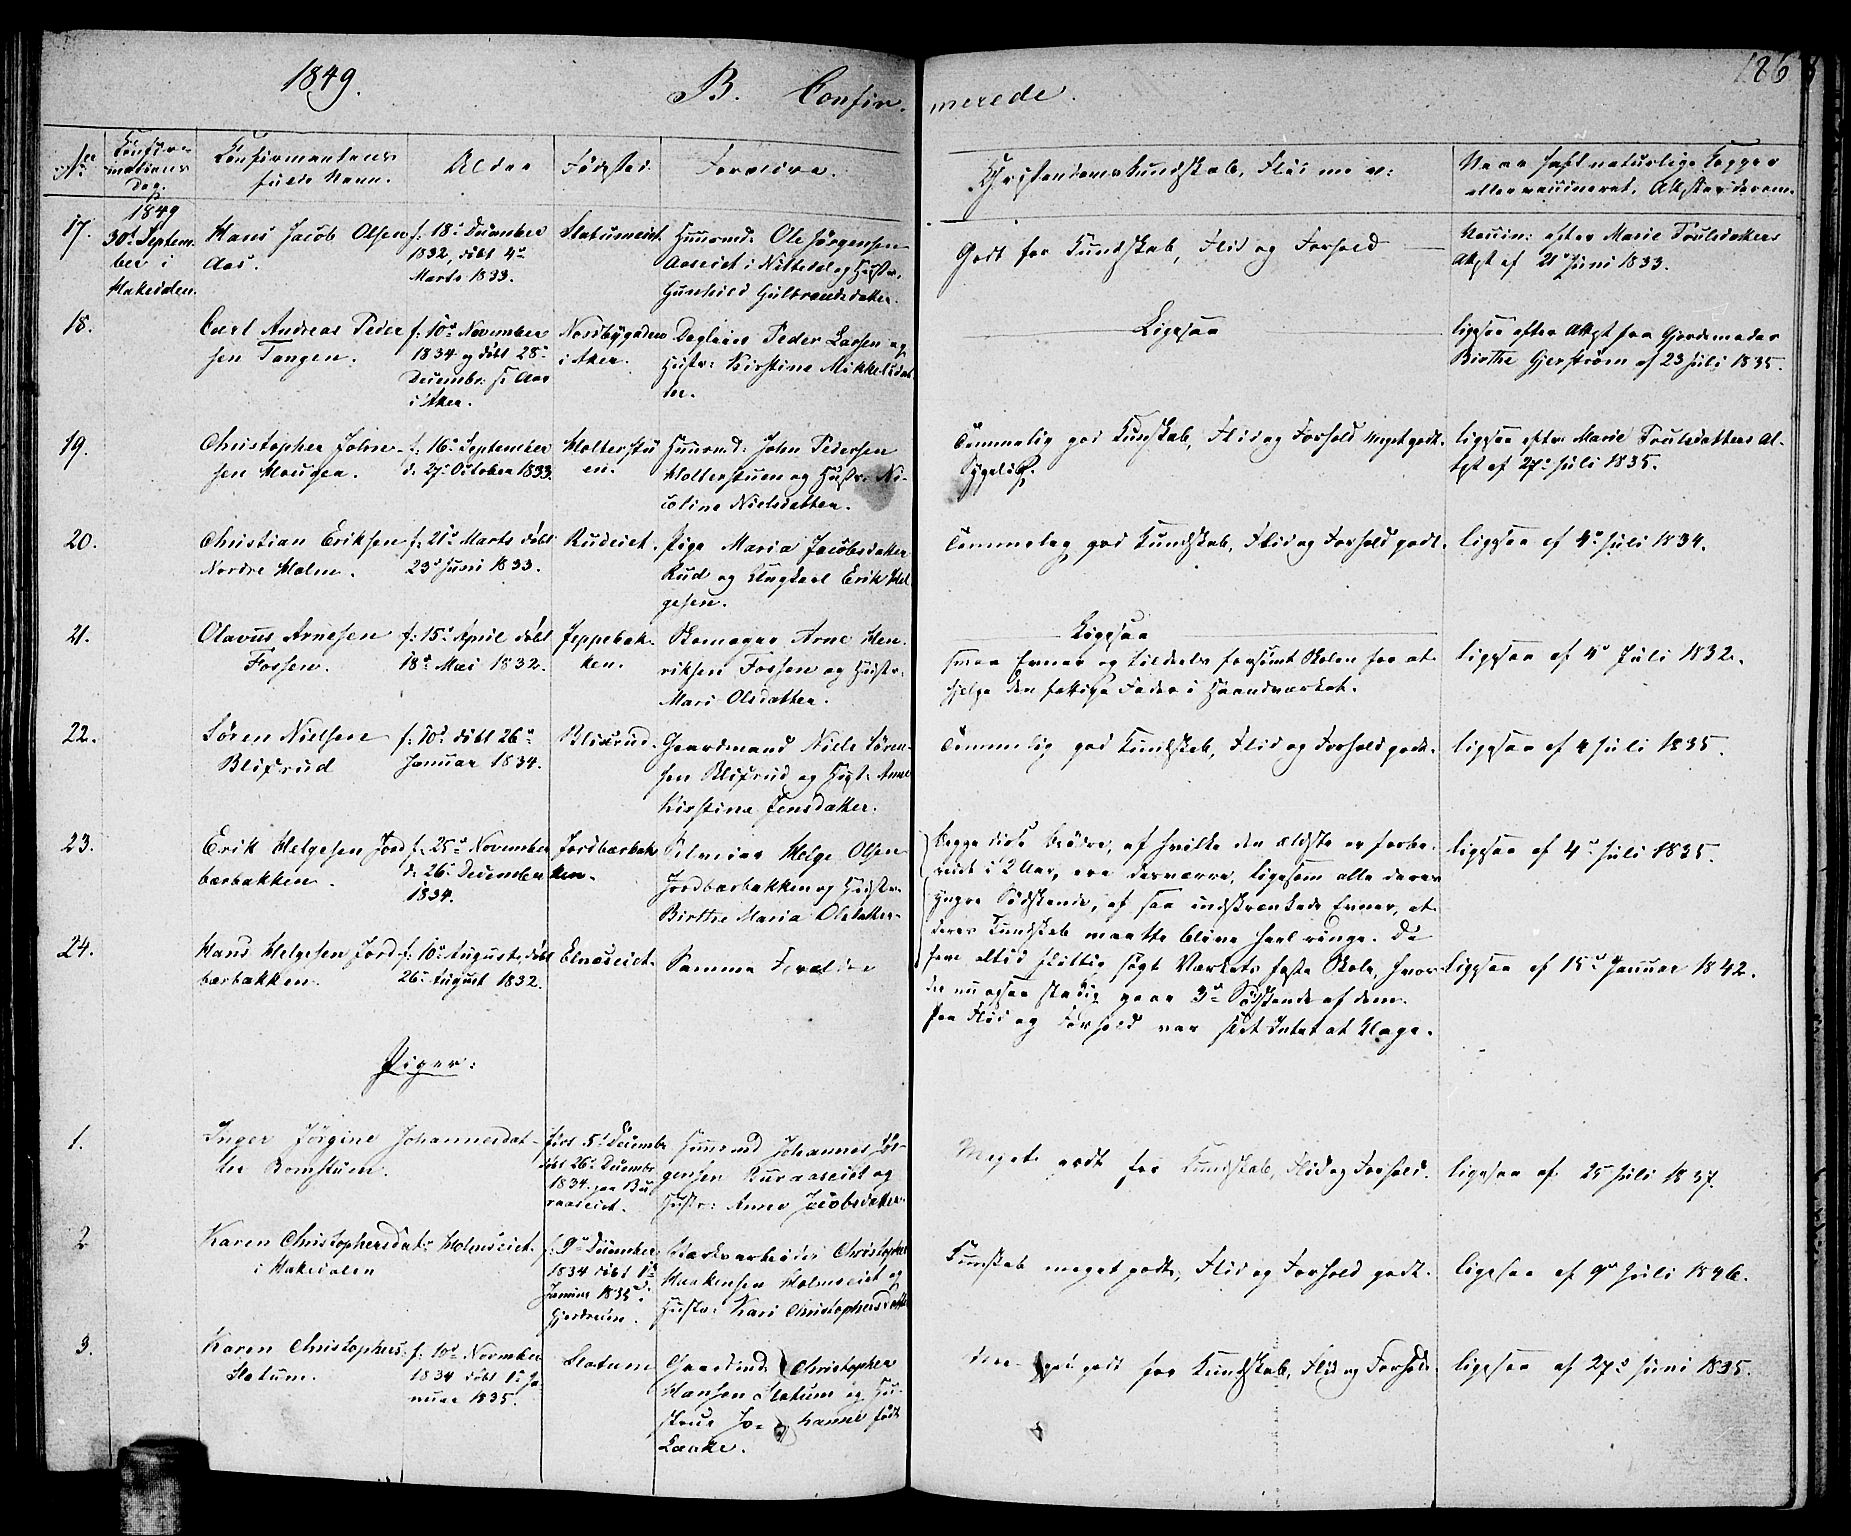 1849.
B. Confir-
merede.
186
No
Confir-
mations
Dag.
Confirmantens
fulde Navn.
Alder
Fødested
Forældre.
Christendoms Kundskab, Flid m. m.
Have haft naturlige Kopper
eller vaccineret, Attester derom.
17.
1849
30te Septem-
ber i
Hakedalen.
Hans Jacob Olsen
Aas.
f. 18de December
1832, døbt 4de
Marts 1833.
Slatumeiet.
Huusmd: Ole Jørgensen
Aaseiet i Nittedal og Hustr:
Gunhild Gulbrandsdatter.
Godt for Kundskab, Flid og Forhold
Vaccin: efter Marie Truls datters
Attest af 21de Juni 1833.
18.
Carl Andreas Peder
sen Tangen.
f. 10de November
1834 og døbt 28de
Decembr: s. Aar
i Aker.
Nordbygaden
i Aker.
Dagleier Peder Larsen og
Hustr: Kirstine Mikkelsdat-
ter.
Ligesaa
ligesaa efter Attest fra Gjordemoder
Birthe Gjerstrøm af 23 Juli 1835.
19.
Christopher John-
sen Haugen.
f. 16de September
d. 27de October 1833.
Holterstu
en.
Huusmd: John Pedersen
Holterstuen og Hustr: Ni-
coline Nielsdatter.
Temmelig god Kundskab, Flid og Forhold meget godt.
Sygelig.
ligesaa eftr: Marie Trulsdatters At-
test af 27de Juli 1835.
20.
Christian Eriksen
Nordre Holm.
f. 21de Marts døbt
23de Juni 1833.
Rudeiet.
Pige Maria Jacobsdatter
Rud og Ungkarl Erik Hel
gesen.
Temmelig god Kundskab, Flid og Forhold godt.
ligesaa af 4de Juli 1834.
21.
Olavus Arnesen
Fossen.
f. 15de April døbt
18de Mai 1832.
Jeppebak-
ken.
Skomager Arne Hen
riksen Fossen og Hustr:
Mari Olsdatter.
Ligesaa
smaa Evner og tildeels forsømt Skolen for at
hjelpe den fattige Fader i Haandværket.
ligesaa af 4de Juli 1832.
22.
Søren Nielsen
Blixrud
f. 10de døbt 26de
Januar 1834.
Blixrud.
Gaardmand Niels Søren-
sen Blixrud og Hust: Anne
Kirstine Jensdatter.
Temmelig god Kundskab, Flid og Forhold godt.
ligesaa af 4 Juli 1835.
23.
Erik Helgesen Jord
bærbakken.
f. 25de November
d. 26de December
1834.
Jordbærbak
ken.
Helge Olsen
Jordbærbakken og Hustr:
Birthe Maria Olsdatter.
Begge disse Brødre, af hvilke den ældste er forbe-
redt i 2 Aar, ere desværre, ligesom alle deres
yngre Sødskende, af saa indskrænkede Evner, at
deres Kundskab maatte blive heel ringe. De
have altid flittig søgt Værkets faste Skole, hvor
der nu ogsaa stadig gaar 3de Sødskende af dem.
Paa Flid og Forhold var slet Intet at klage.
ligesaa af 4de Juli 1835.
24.
Hans Helgesen Jord
bærbakken.
f. 10de August, døbt
26de August 1832.
Elnæseiet.
Samme Forældre
ligesaa af 15de Januar 1842.
Piger:
1.
Inger Jørgine Johannesdat-
ter Bomstuen.
født 5te Decembr
døbt 26de Decembr
1834 paa Bu
raaseiet.
Huusmd Johannes Jør-
gensen Buraaseiet og
Hustr: Anne Jacobsdatter.
Meget godt for Kundskab, Flid og Forhold.
ligesaa af 25 Juli 1837.
2
Karen Christophersdatr Holmseiet
i Hakedalen
f. 9de December
1834 døbt 1ste
Januar 1835 i
Gjerdrum.
Værksarbeider Christopher
Haakensen Holmseiet og
Hustr: Kari Christophersdatter
Kundskab meget godt, Flid og Forhold godt.
ligesaa af 9de Juli 1846.
3.
Karen Christophers.
Slatum.
f. 10de November
1834 døbt 1ste Ja-
nuar 1835.
Slatum
Gaardmd: Christopher
Hansen Slatum og Hu-
strue Jo- hanne født
Laake.
Meget godt for Kundskab, Flid og Forhold.
ligesaa af 27de Juni 1835.